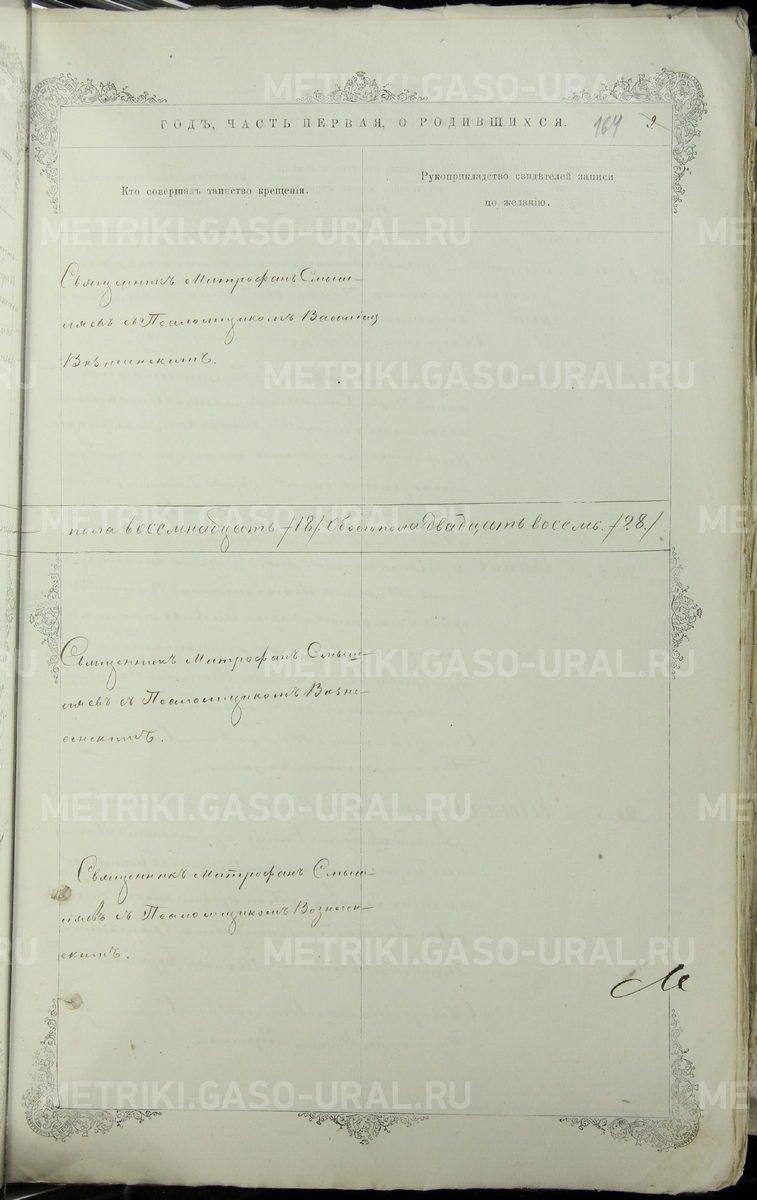 ГОДЪ, ЧАСТЬ ПЕРВАЯ, О РОДИВШИХСЯ.
164
9
Кто совершалъ таинство крещенія.
Рукоприкладство свидѣтелей записи
по желанію.
Священникъ Митрофанъ Смыш-
ляевъ съ Псаломщикомъ
пола восемнадцать /18/. Обоего пола двадцать восемь. /28./
Священникъ Митрофанъ Смыш-
ляевъ съ Псаломщикомъ Возне-
сенскимъ.
Священникъ Митрофанъ Смыш-
ляевъ съ Псаломщикомъ Вознесен-
скимъ.
METRIKI.GASO-URAL.RU
METRIKI.GASO-URAL.RU
METRIKI.GASO-URAL.RU
METRIKI.GASO-URAL.RU
METRIKI.GASO-URAL.RU
METRIKI.GASO-URAL.RU
METRIKI.GASO-URAL.RU
METRIKI.GASO-URAL.RU